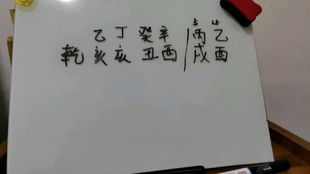 乙丁癸辛丙乙
乾亥亥丑酉戌酉